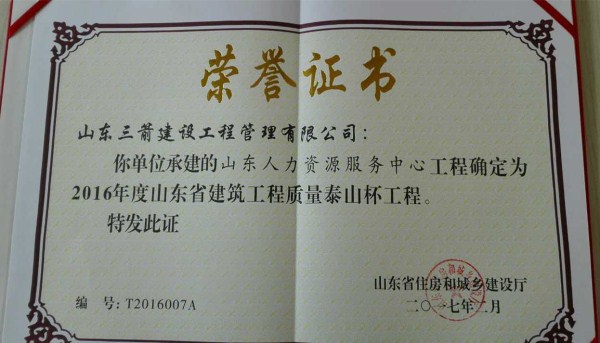 荣誉证书
山东三箭建设工程管理有限公司：
你单位承建的山东人力资源服务中心工程确定为
2016年度山东省建筑工程质量泰山杯工程。
特发此证
山东省住房和城乡建设厅
编 号: T2016007A
二〇一七年二月